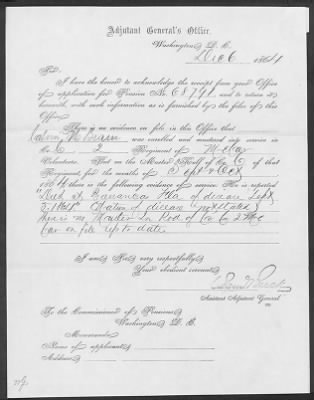 Adjutant General's Office,
Washington, D. C.
Dec 6 1864
Sir:
I have the honor to acknowledge the receipt from your Office
of application for Pension No. 63791, and to return it
herewith, with such information as is furnished by the files of this
Office.
There is no evidence on file in this Office that
was enrolled and mustered into service in
Co. 2 Regiment of
Volunteers. But on the Muster Roll of Co. of that
Regiment, for the months of Sept & Oct
1864 there is the following evidence of service. He is reported
"Died at Fla of disease Sept
of disease not stated
there is no Muster In Roll of Co 2
Cav on file up to date
I am, Sir, very respectfully,
Your obedient servant,
Assistant Adjutant General
To the Commissioner of Pensions,
Washington, D. C.
Memoranda:
Name of applicant,
Address,